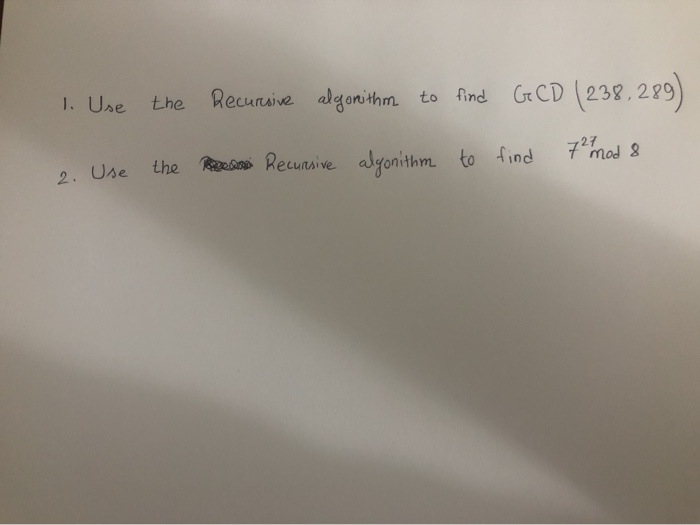 1. Use the Recursive algorithm to find GCD (238, 289)
2. Use the Recursive algorithm to find 7²⁷ mod 8